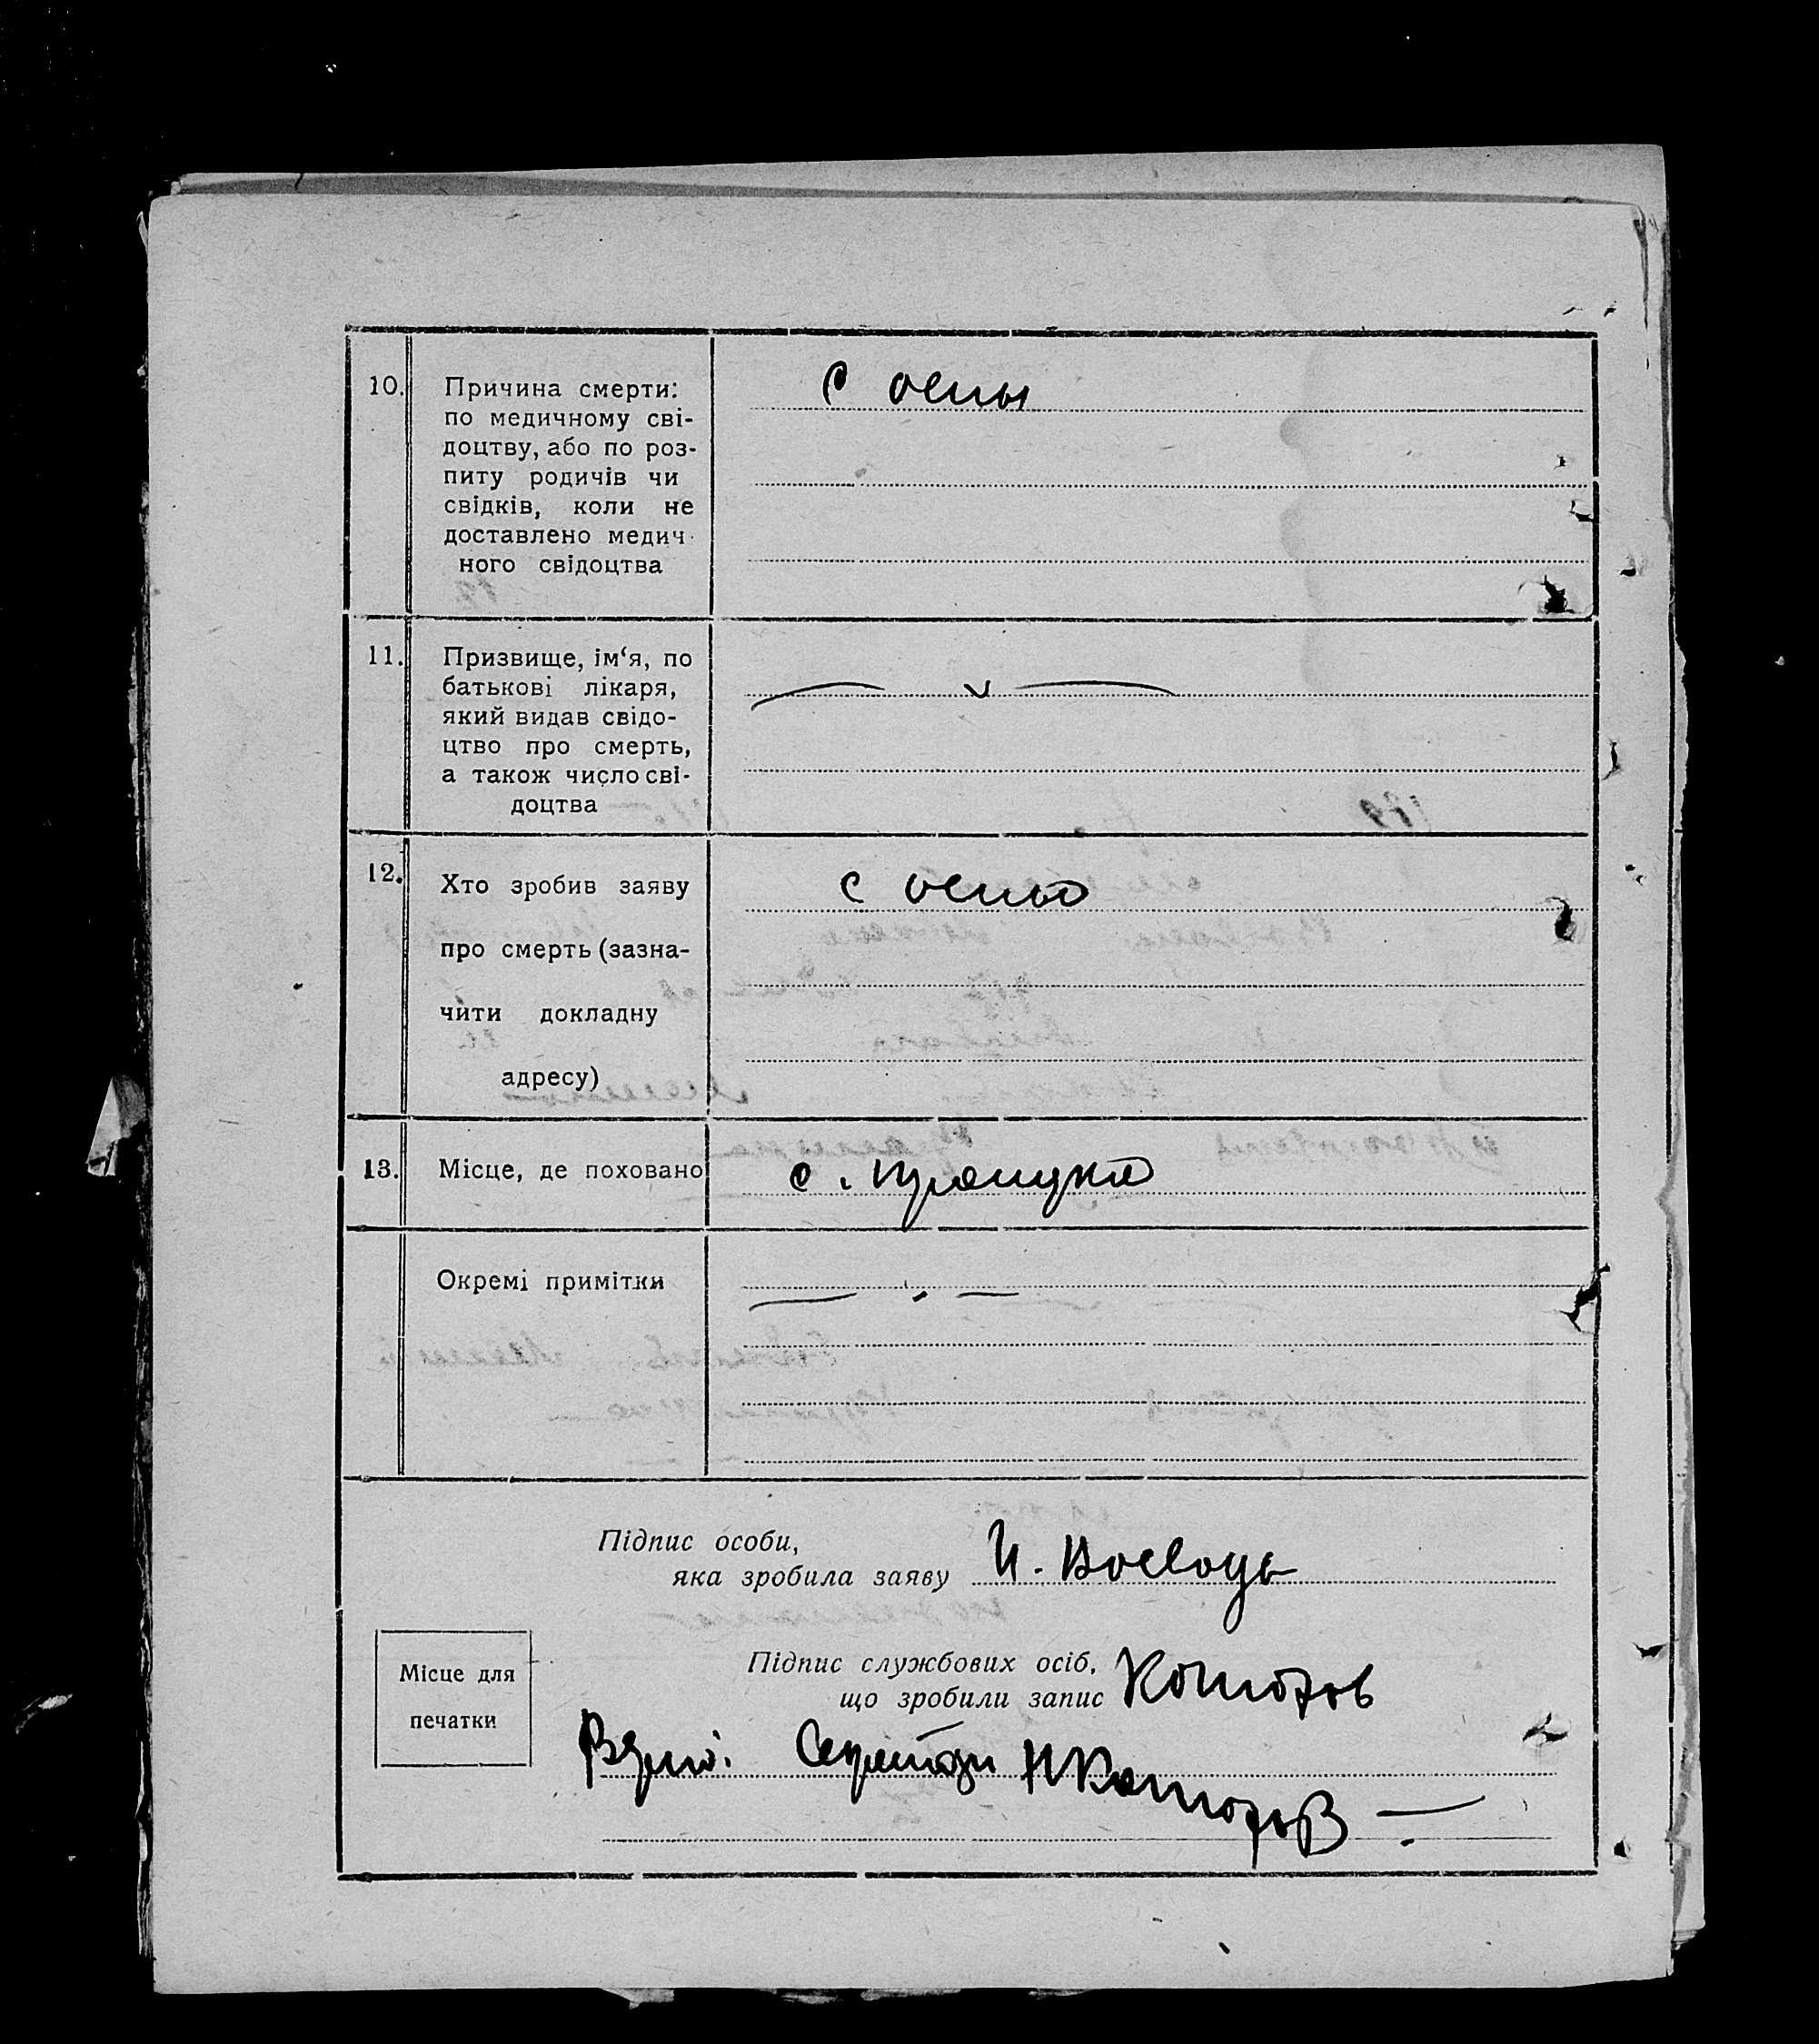 10. Причина смерти: с оспы
по медичному сві-
доцтву, або по роз-
питу родичів чи
свідків, коли не
доставлено медич-
ного свідоцтва
11. Призвище, ім‘я, по
батькові лікаря,
який видав свідо-
цтво про смерть,
а також число сві-
доцтва
12. Хто зробив заяву
про смерть (зазна-
чити докладну
адресу)
13. Місце, де поховано с.
Окремі примітки
Підпис особи,
яка зробила заяву И.
Підпис службових осіб,
що зробили запис
Місце для
печатки